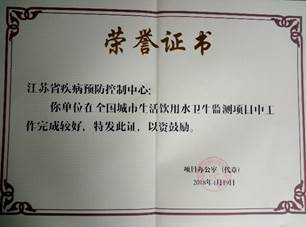 荣誉证书
江苏省疾病预防控制中心:
你单位在全国城市生活饮用水卫生监测项目中工
作完成较好，特发此证，以资鼓励。
项目办公室（代章）